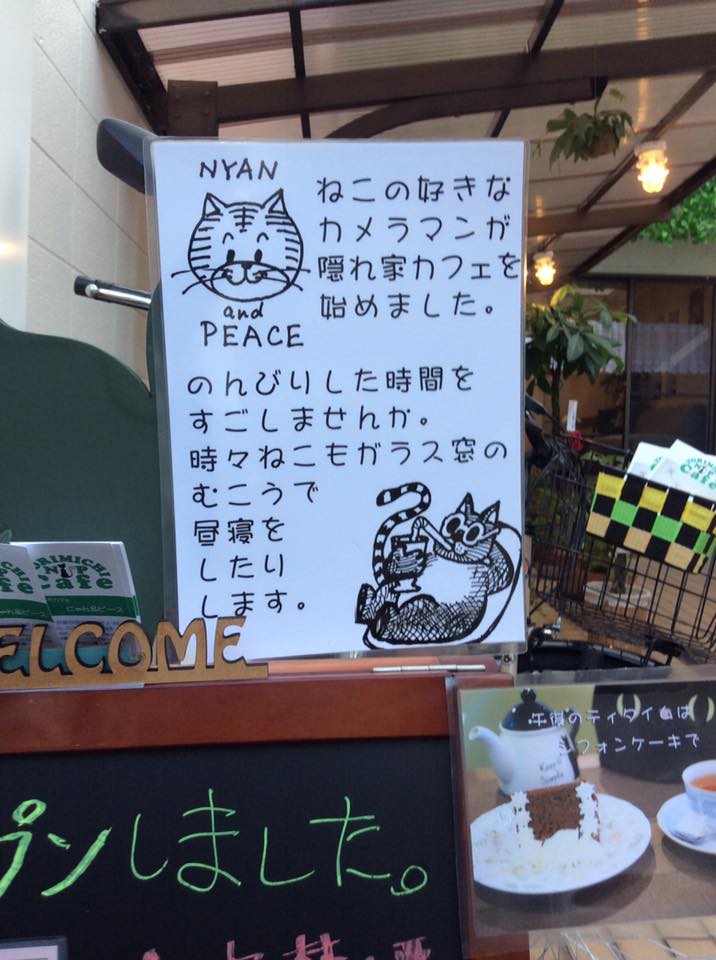 NYAN
and
PEACE
ねこの好きな
カメラマンが
隠れ家カフェを
始めました。
のんびりした時間を
すごしませんか。
時々ねこもガラス窓の
むこうで
昼寝を
したり
します。
YORIMICHI
Cafe
にゃん&ピース
WELCOME
プンしました。
午後のティタイムは
シフォンケーキで
Keep it
Simple